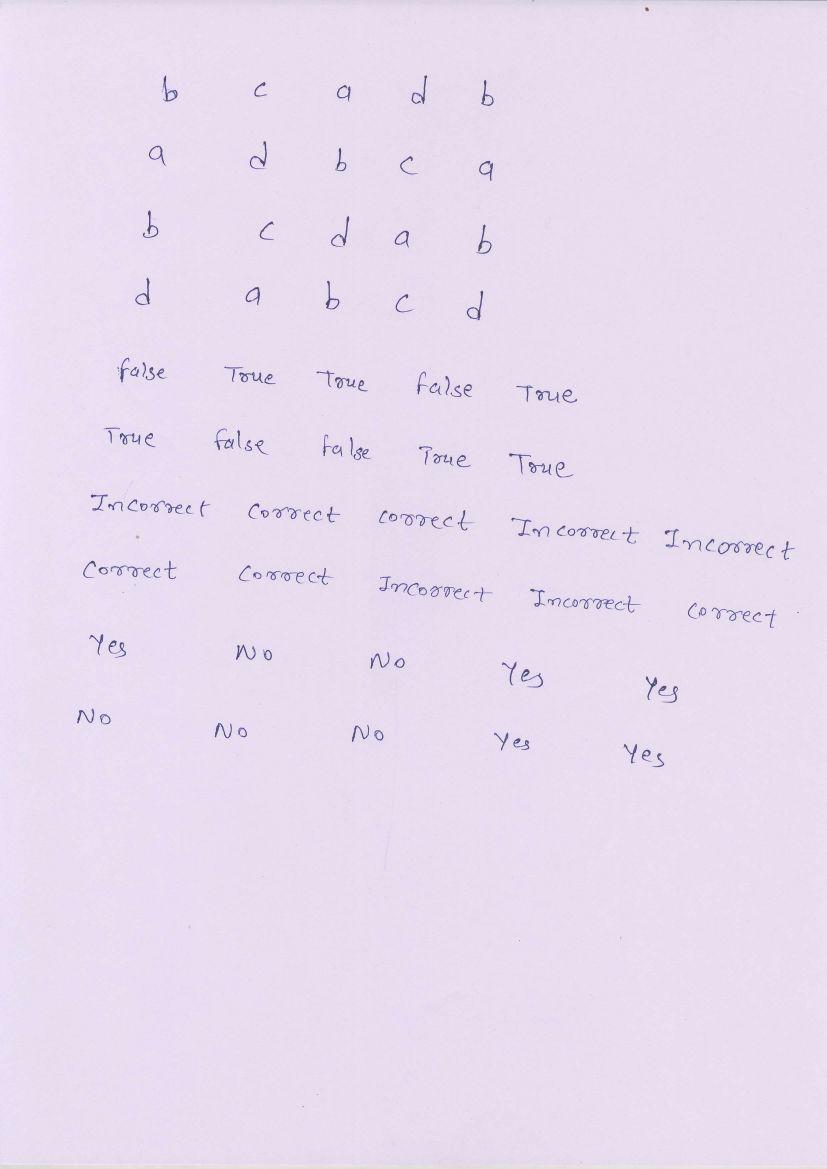 b c a d b
a d b c a
b c d a b
d a b c d
false True True false True
True false false True True
Incorrect Correct correct Incorrect Incorrect
Correct Correct Incorrect Incorrect correct
Yes No No Yes Yes
No No No Yes Yes